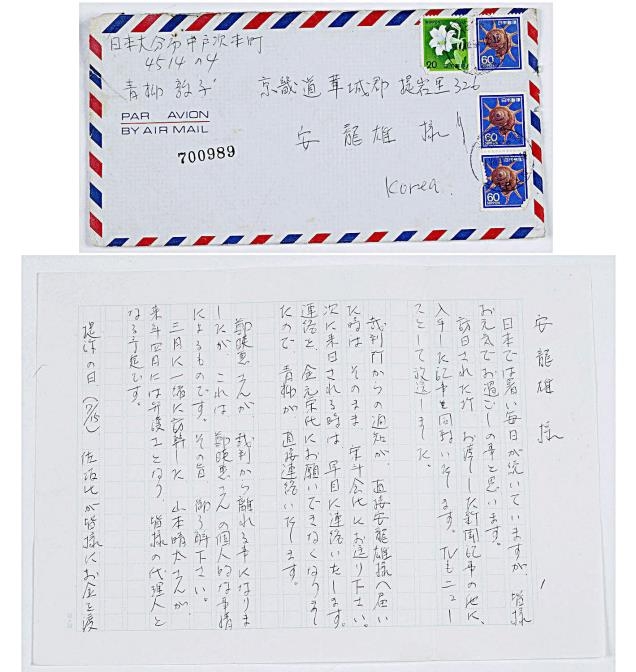 日本大分市中戸次本町
4514の4
青柳敦子
PAR AVION
BY AIR MAIL
700989
京畿道華城郡 提岩里 326
安 龍雄 様
Korea.
20
60
60
60
安 龍雄 様
日本では暑い毎日が続いていますが、皆様
お元気でお過ごしの事と思います。
訪日された折、お渡しした新聞記事の他に、
入手した記事を同封いたします。TVもニュー
スとして放送しました。
裁判所からの通知が、直接安龍雄様へ届い
た時は、そのまま 宋斗会氏にお送り下さい。
次に来日される時は、早目に連絡いたします。
連絡を、金元宗氏にお願いできなくなりまし
たので、青柳が直接連絡いたします。
鄭暎恵さんが、裁判から離れる事になりま
したが、これは 鄭暎恵さんの個人的な事情
によるものです。その旨 御了解下さい。
三月に一緒に訪韓した 山本晴太さんが、
来年四月には弁護士となり 皆様の代理人と
なる予定です。
提訴の日(7/15) 佐治氏が皆様にお金を渡